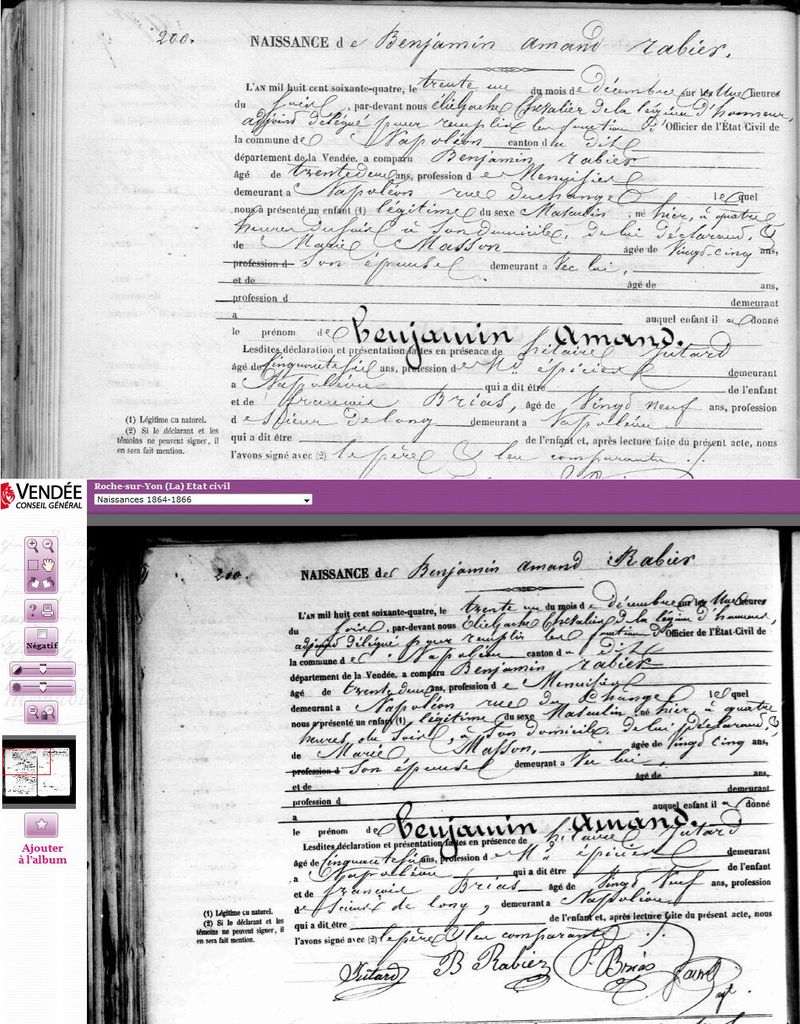 200.
NAISSANCE de Benjamin amand rabier.
L'AN mil huit cent soixante-quatre, le trente un du mois de décembre sur les Une heures
du soir, par-devant nous Chevalier de la légion d'honneur,
adjoint délégué pour remplir les fonctions d'Officier de l'État Civil de
la commune de Napoléon canton du dit
département de la Vendée, a comparu Benjamin rabier
âgé de trente deux ans, profession de Menuisier
demeurant a Napoléon rue du change lequel
nous a présenté un enfant (1) légitime du sexe Masculin, né hier, à quatre
heures du soir à son domicile, de lui déclarant, &
de Marie Masson âgée de Vingt-cinq ans,
profession d son épouse demeurant a Vec lui,
et de âgé de ans,
profession d demeurant
a auquel enfant il a donné
le prénom de benjamin amand.
Lesdites déclaration et présentation faites en présence de hilaire Jutard
âgé de Cinquante six ans, profession de Md épicier demeurant
a Napoléon qui a dit être de l'enfant
et de françois Brias, âgé de Vingt neuf ans, profession
de Scieur de long demeurant a Napoléon
qui a dit être de l'enfant et, après lecture faite du présent acte, nous
l'avons signé avec (2) le père & les comparants ./.
(1) Légitime ou naturel.
(2) Si le déclarant et les
témoins ne peuvent signer, il
en sera fait mention.
VENDÉE
CONSEIL GÉNÉRAL
Roche-sur-Yon (La) Etat civil
Naissances 1864-1866
Négatif
Ajouter
à l'album
200.
NAISSANCE de Benjamin amand Rabier
L'AN mil huit cent soixante-quatre, le trente un du mois de décembre sur les Une heures
du soir, par-devant nous Chevalier de la légion d'honneur,
adjoint délégué pour remplir les fonctions d'Officier de l'État Civil de
la commune de Napoléon canton du dit
département de la Vendée, a comparu Benjamin rabier
âgé de trente deux ans, profession de Menuisier
demeurant a Napoléon rue du Change lequel
nous a présenté un enfant (1) légitime du sexe Masculin, né hier, à quatre
heures du Soir, à son domicile, de lui déclarant, &
de Marie Masson, âgée de vingt cinq ans,
profession d son épouse demeurant a Vec lui
et de âgé de ans,
profession d demeurant
a auquel enfant il a donné
le prénom de benjamin amand.
Lesdites déclaration et présentation faites en présence de hilaire Jutard
âgé de Cinquante six ans, profession de Md épicier demeurant
a Napoléon qui a dit être de l'enfant
et de françois Brias âgé de Vingt Neuf ans, profession
de Scieur de long, demeurant a Napoléon
qui a dit être de l'enfant et, après lecture faite du présent acte, nous
l'avons signé avec (2) le père & les comparants ./.
(1) Légitime ou naturel.
(2) Si le déclarant et les
témoins ne peuvent signer, il
en sera fait mention.
Jutard B Rabier Brias